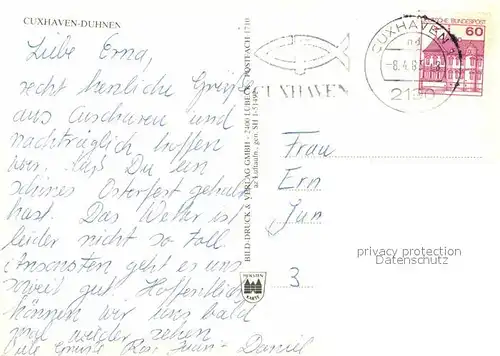 CUXHAVEN-DUHNEN
Liebe Erna,
recht herzliche Grüße
aus Cuxhaven und
nachträglich hoffen
wir, daß Du ein
schönes Osterfest gehabt
hast. Das Wetter ist
leider nicht so toll.
Ansonsten geht es uns
soweit gut. Hoffentlich
können wir uns bald
mal wieder sehen
Viele Grüße Daniel
BILD-DRUCK & VERLAG GMBH - 2400 LÜBECK - POSTFACH 1710
az Luftaufn., gen. SH 1-51498
CUXHAVEN
CUXHAVEN 1
-8.4.
2190
DEUTSCHE BUNDESPOST
60
Frau
Ern
Jun
3
privacy protection
Datenschutz
KARTE